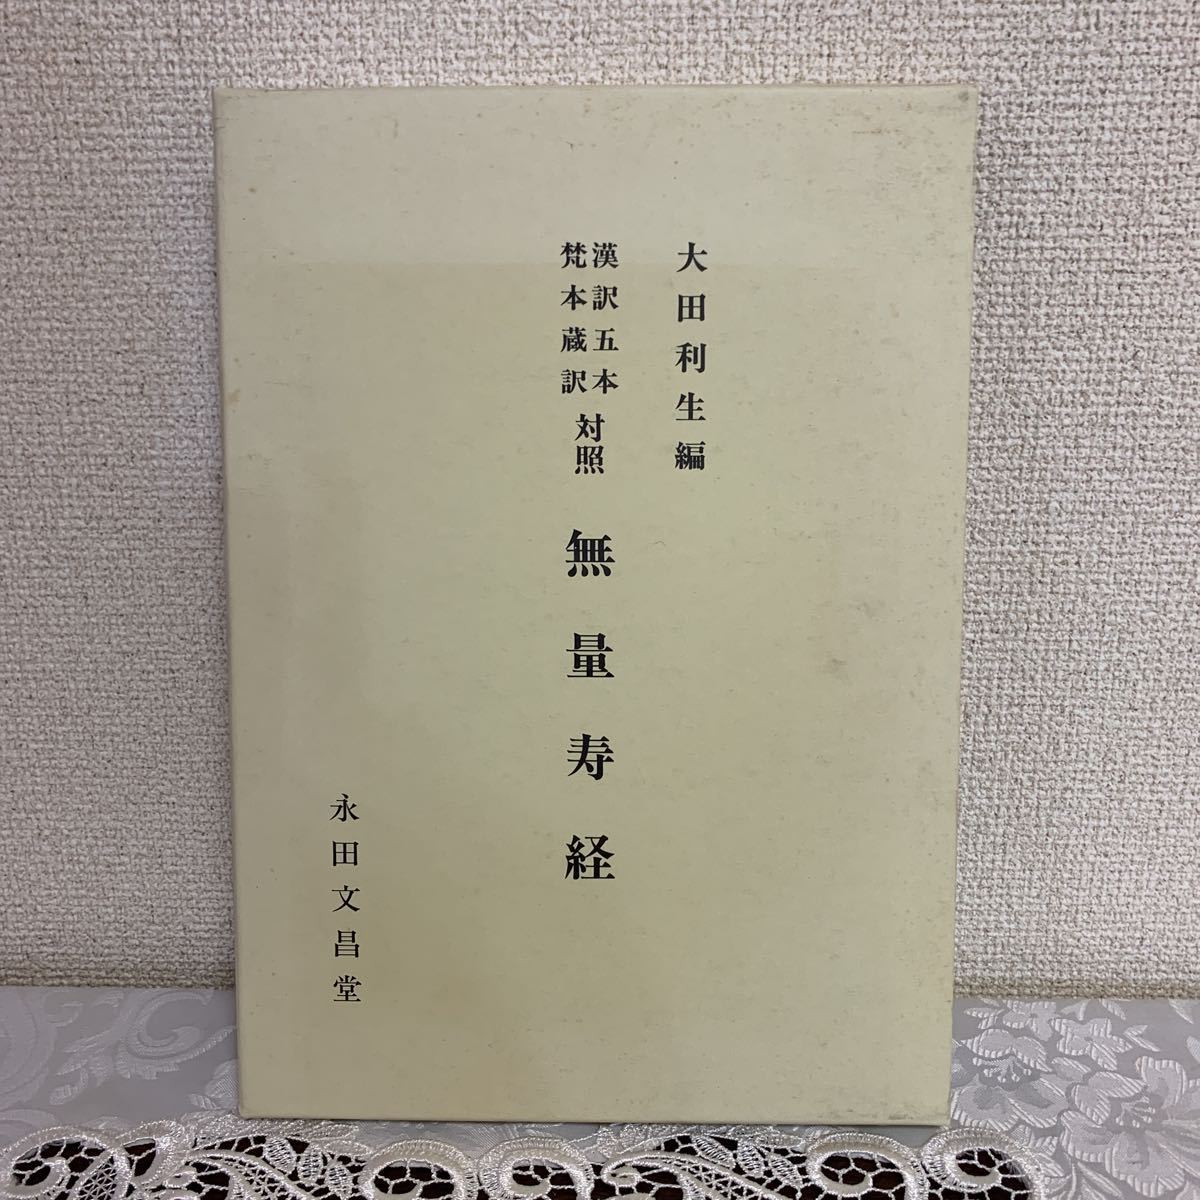 大田利生編
漢訳五本
梵本蔵訳
対照
無量寿経
永田文昌堂